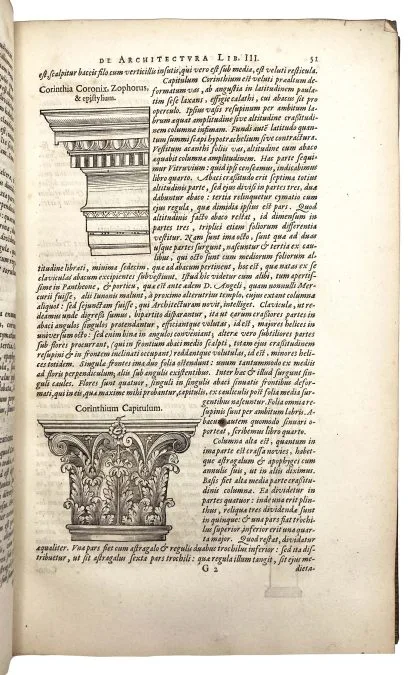 DE ARCHITECTVRA LIB. III. 51
est, scalpitur baccis filo cum verticillis insutis, qui vero est sub media, est veluti resticula.
Corinthia Coronix, Zophorus,
& epistylium.
Capitulum Corinthium est veluti praaltum de-
formatum vas, ab angustia in latitudinem paula-
tim sese laxans, effigie calathi, cui abacus sit pro
operculo. Ipsius vasis resupinum per ambitum la-
brum aquat amplitudine sive altitudine crasitudi-
nem columna infimam. Fundi autē latitudo quan-
tum summi scapi hypotrachelium sive contractura.
Vestitum acanthi foliis vas, altitudine cum abaco
aquabit columna amplitudinem. Hac parte sequi-
mur Vitruvium: quid ipsi censeamus, indicabimus
libro quarto. Abaci crasitudo erit septima totius
altitudinis parte, sed ejus divisa in partes tres, dua
dabuntur abaco: tertia relinquetur cymatio cum
ejus regula, qua dimidia ipsius est pars. Quod
altitudinis facto abaco restat, id dimensum in
partes tres, triplici etiam foliorum differentia
vestitur. Nam sunt ima octo, sunt qua ad duas
usque partes surgunt, nascuntur & tertia ex cau-
libus, qui octo sunt cum mediorum foliorum al-
titudine librati, minima sedecim, qua ad abacum pertinent, hoc est, qua natas ex se
claviculas abacum excipientes subvestiunt. Istud hic videtur cum alibi, tum apertis-
sime in Pantheone, & porticu, qua est ante adem D. Angeli, quam nonnulli Mer-
curii fuisse, alii Iunonis malunt, à proximo alterius templo, cujus extant columna
aliquot: sed sejunctam fuisse, qui Architecturam novit, intelliget. Clavicula, ut re-
deamus unde digressi sumus, bipartito disparantur, ita ut earum crasiores partes in
abaci angulos singulos protendantur, efficiantque volutas, id est, majores helices in
universum octo: sed enim bina in angulos conveniant, altera vero subtiliores partes
sub flores procurrant, (qui in frontium abaci medio scalpti, totam ejus crasitudinem
resupini & in frontem inclinati occupant) reddantque volutulas, id est, minores heli-
ces totidem. Singula frontes ima duo folia ostendunt: unum tantummodo ex mediis
ad floris perpendiculum; alia sub angulis existentibus. Inter hac & illud surgunt sin-
guli caules. Flores sunt quatuor, singuli in singulis abaci sinuatis frontibus defor-
mati, qui in eis, qua maxime mihi probantur, capitulis, ex cauliculis post folia media sur-
Corinthium Capitulum.
gentibus nascuntur. Folia omnia re-
supinis sunt per ambitum labris. A-
bacus autem quomodo sinuari o-
porteat, scribemus libro quarto.
Columna alta est, quantum in
ima parte est crassa novies, habet-
que astragalum & apophyges cum
annulis suis, ut in aliis diximus.
Basis fiet alta media parte crasitu-
dinis columna. Ea dividetur in
partes quatuor: inde una erit plin-
thus, reliqua tres dividenda sunt
in quinque: & una pars fiat trochi-
lus superior inferior erit una quar-
ta major. Quod restat, dividatur
aqualiter. Vna pars fiet cum astragalo & regulis duabus trochilus inferior: sed ita dis-
tribuetur, ut sit astragalus sexta pars trochili: qua regula illum tangit, sit ejus me-
G 2 dieta-